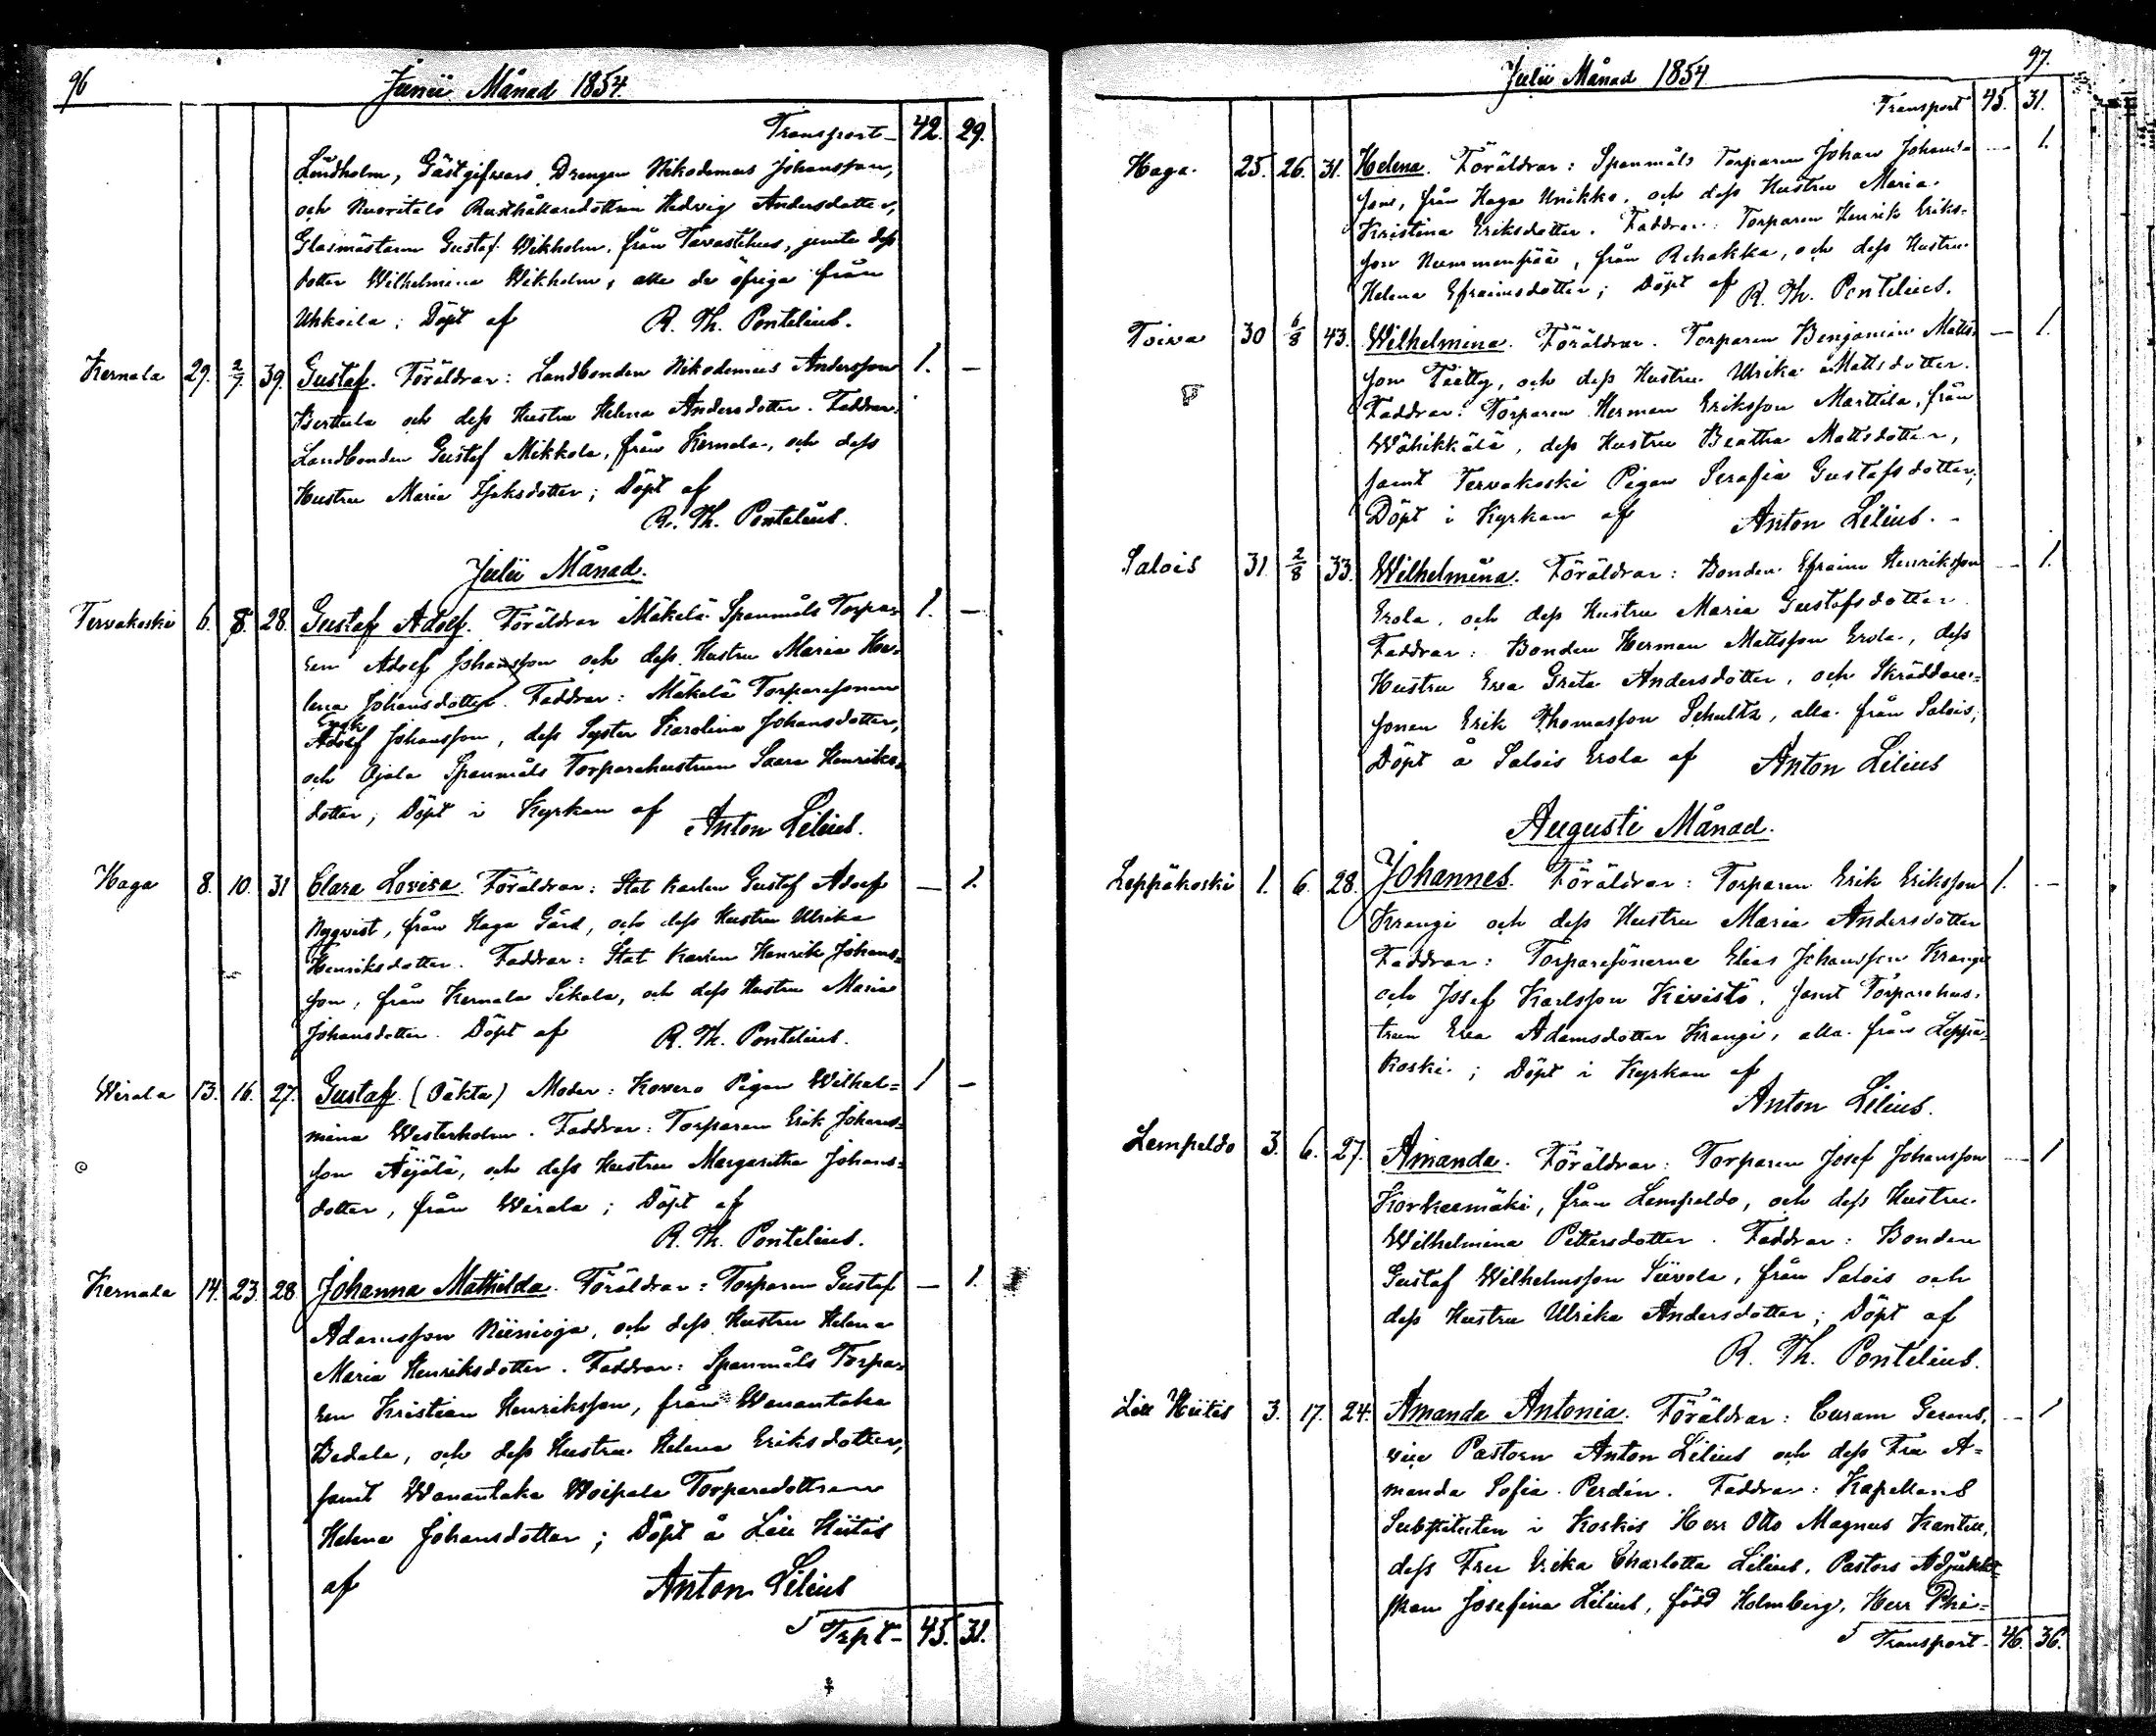 96
Junii Månad 1854.
Transport 42. 29.
Lindholm, Gästgifvars Drengen Nikodemus Johansson,
och Nuoritalo Rusthållaredottren Hedvig Andersdotter,
Glasmästaren Gustaf Wikholm, från Tavastehus, jemte dess
dotter Wilhelmina Wikholm, alla de öfriga från
Uhkoila; Döpt af R. Th. Pontelius.
Kernala 29. 2/7 39. Gustaf. Föräldrar: Landbonden Nikodemus Andersson 1. —
Berttula och dess Hustru Helena Andersdotter. Faddrar:
Landbonden Gustaf Mikkola, från Kernala, och dess
Hustru Maria Isaksdotter; Döpt af
R. Th. Pontelius.
Julii Månad.
Tervakoski 6. 8. 28. Gustaf Adolf. Föräldrar Mäkelä Spanmåls Torpa- 1. —
ren Adolf Johansson och dess Hustru Maria He-
lena Johansdotter. Faddrar: Mäkelä Torparesonen
Erik
Adolf Johansson, dess Syster Karolina Johansdotter,
och Ojala Spanmåls Torparehustrun Saara Henriks-
dotter; Döpt i Kyrkan af Anton Lilius.
Haga 8. 10. 31 Clara Lovisa. Föräldrar: Stat karlen Gustaf Adolf — 1.
Nyqvist, från Haga Gård, och dess Hustru Ulrika
Henriksdotter. Faddrar: Stat karlen Henrik Johans-
son, från Kernala Sikala, och dess Hustru Maria
Johansdotter. Döpt af R. Th. Pontelius.
Wirala 13. 16. 27. Gustaf (Oäkta) Moder: Kovero Pigan Wilhel= 1 —
mina Westerholm. Faddrar: Torparen Erik Johans-
son Äijälä, och dess Hustru Margaretha Johans-
dotter, från Wirala; Döpt af
R. Th. Pontelius.
Kernala 14. 23. 28. Johanna Mathilda. Föräldrar: Torparen Gustaf — 1.
Adamsson Niinioja, och dess Hustru Helena
Maria Henriksdotter. Faddrar: Spanmåls Torpa-
ren Kristian Henriksson, från Wanantaka
Bedala, och dess Hustru Helena Eriksdotter,
samt Wanantaka Woipala Torparedottren
Helena Johansdotter; Döpt å Lill Hiitis
af Anton Lilius
5 Trpt 45. 31.
97.
Julii Månad 1854
Transport 45. 31.
Haga. 25. 26. 31. Helena. Föräldrar: Spanmåls Torparen Johan Johans- — 1.
son, från Haga Unikko, och dess Hustru Maria
Kristina Eriksdotter. Faddrar: Torparen Henrik Eriks-
son Nummenpää, från Rehakka, och dess Hustru
Helena Efraimsdotter; Döpt af R. Th. Pontelius.
Toiva 30 6/8 43. Wilhelmina. Föräldrar. Torparen Benjamin Matts- — 1.
son Täälty, och dess Hustru Ulrika Mattsdotter.
Faddrar: Torparen Herman Eriksson Marttila, från
Wähikkälä, dess Hustru Beatha Mattsdotter,
samt Tervakoski Pigan Serafia Gustafsdotter;
Döpt i Kyrkan af Anton Lilius.
Salois 31. 2/8 33. Wilhelmina. Föräldrar: Bonden Efraim Henriksson — 1.
Erola, och dess Hustru Maria Gustafsdotter.
Faddrar: Bonden Herman Mattsson Erola, dess
Hustru Eva Greta Andersdotter, och Skräddare-
sonen Erik Thomasson Schultz, alla från Salois;
Döpt å Salois Erola af Anton Lilius
Augusti Månad.
Leppäkoski 1. 6. 28. Johannes. Föräldrar: Torparen Erik Eriksson 1. —
Krangi och dess Hustru Maria Andersdotter
Faddrar: Torparesönerne Elias Johansson Krangi
och Josef Karlsson Kivistö, samt Torparehus-
trun Eva Adamsdotter Krangi, alla från Leppä-
koski; Döpt i Kyrkan af
Anton Lilius.
Lempeldo 3. 6. 27. Amanda. Föräldrar: Torparen Josef Johansson — 1
Korkeemäki, från Lempeldo, och dess Hustru
Wilhelmina Pettersdotter. Faddrar: Bonden
Gustaf Wilhelmsson Siivola, från Salois och
dess Hustru Ulrika Andersdotter; Döpt af
R. Th. Pontelius.
Lill Hiitis 3. 17. 24. Amanda Antonia. Föräldrar: Curam Gerens, — 1
vice Pastorn Anton Lilius och dess Fru A-
manda Sofia Perdén. Faddrar: Kapellans
Substituten i Koskis Herr Otto Magnus Kantell,
dess Fru Erika Charlotta Lilius, Pastors Adjunkt-
skan Josefina Lilius, född Holmberg, Herr Phi-
5 Transport 46. 36.